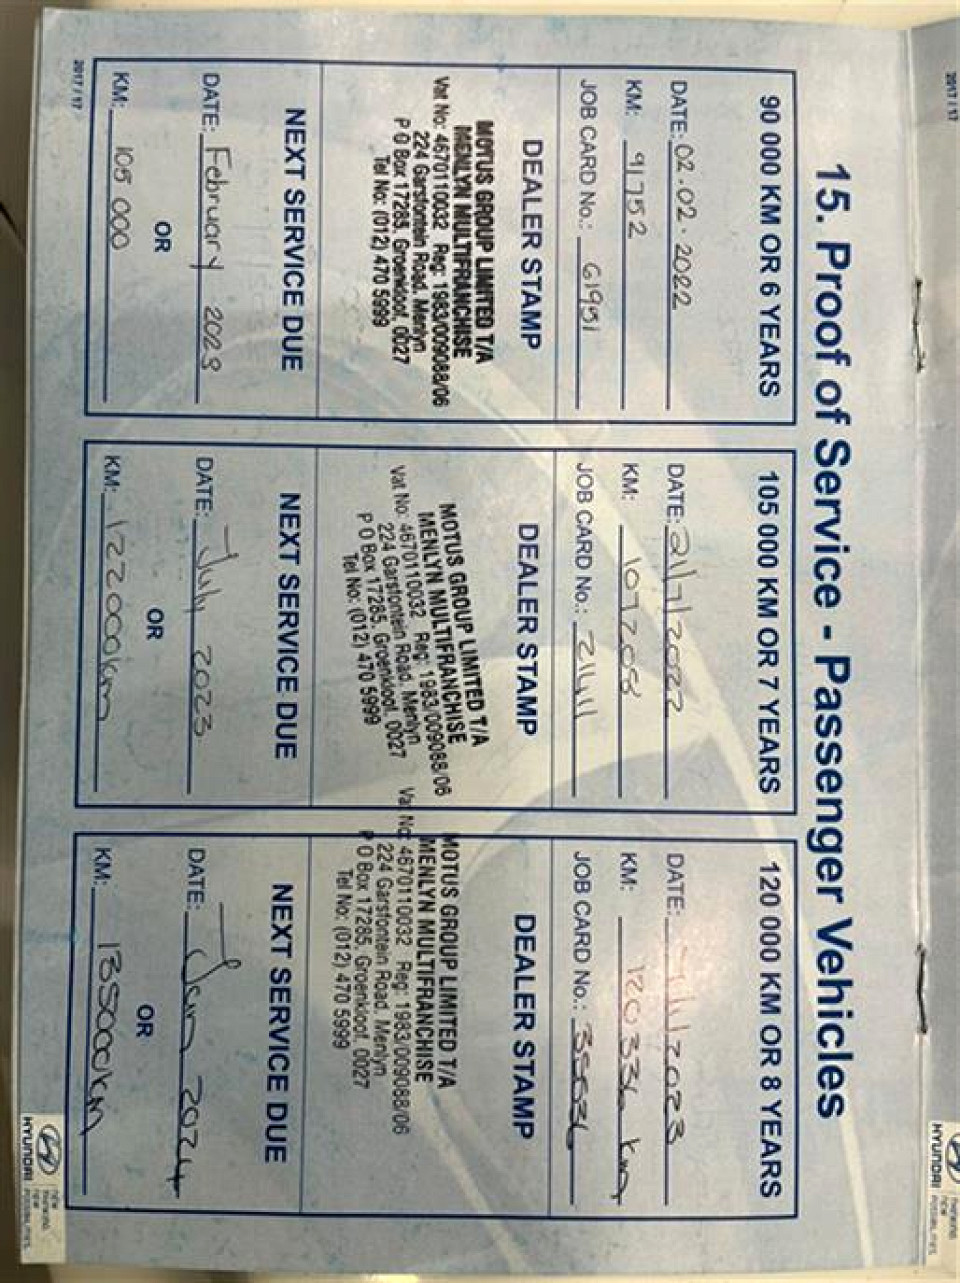 15. Proof of Service - Passenger Vehicles
90 000 KM OR 6 YEARS
DATE: 02.02.2022
KM: 91752
JOB CARD No.: 61951
DEALER STAMP
MOTUS GROUP LIMITED T/A
MENLYN MULTIFRANCHISE
Vat No: 4670110032 Reg: 1983/009088/06
224 Garsfontein Road, Menlyn
P O Box 17285, Groenkloof, 0027
Tel No: (012) 470 5999
NEXT SERVICE DUE
DATE: February 2023
OR
KM: 105 000
2017 / 17
105 000 KM OR 7 YEARS
DATE: 21/7/2022
KM: 107208
JOB CARD No.:
DEALER STAMP
MOTUS GROUP LIMITED T/A
MENLYN MULTIFRANCHISE
Vat No: 4670110032 Reg: 1983/009088/06
224 Garsfontein Road, Menlyn
P O Box 17285, Groenkloof, 0027
Tel No: (012) 470 5999
NEXT SERVICE DUE
DATE: July 2023
OR
KM: 122000km
120 000 KM OR 8 YEARS
DATE:
KM: 120336 km
JOB CARD No.:
DEALER STAMP
MOTUS GROUP LIMITED T/A
MENLYN MULTIFRANCHISE
Vat No: 4670110032 Reg: 1983/009088/06
224 Garsfontein Road, Menlyn
P O Box 17285, Groenkloof, 0027
Tel No: (012) 470 5999
NEXT SERVICE DUE
DATE: Jan 2024
OR
KM: 135000km
HYUNDAI
NEW
THINKING.
NEW
POSSIBILITIES.
2017 / 17
HYUNDAI
NEW
THINKING.
NEW
POSSIBILITIES.